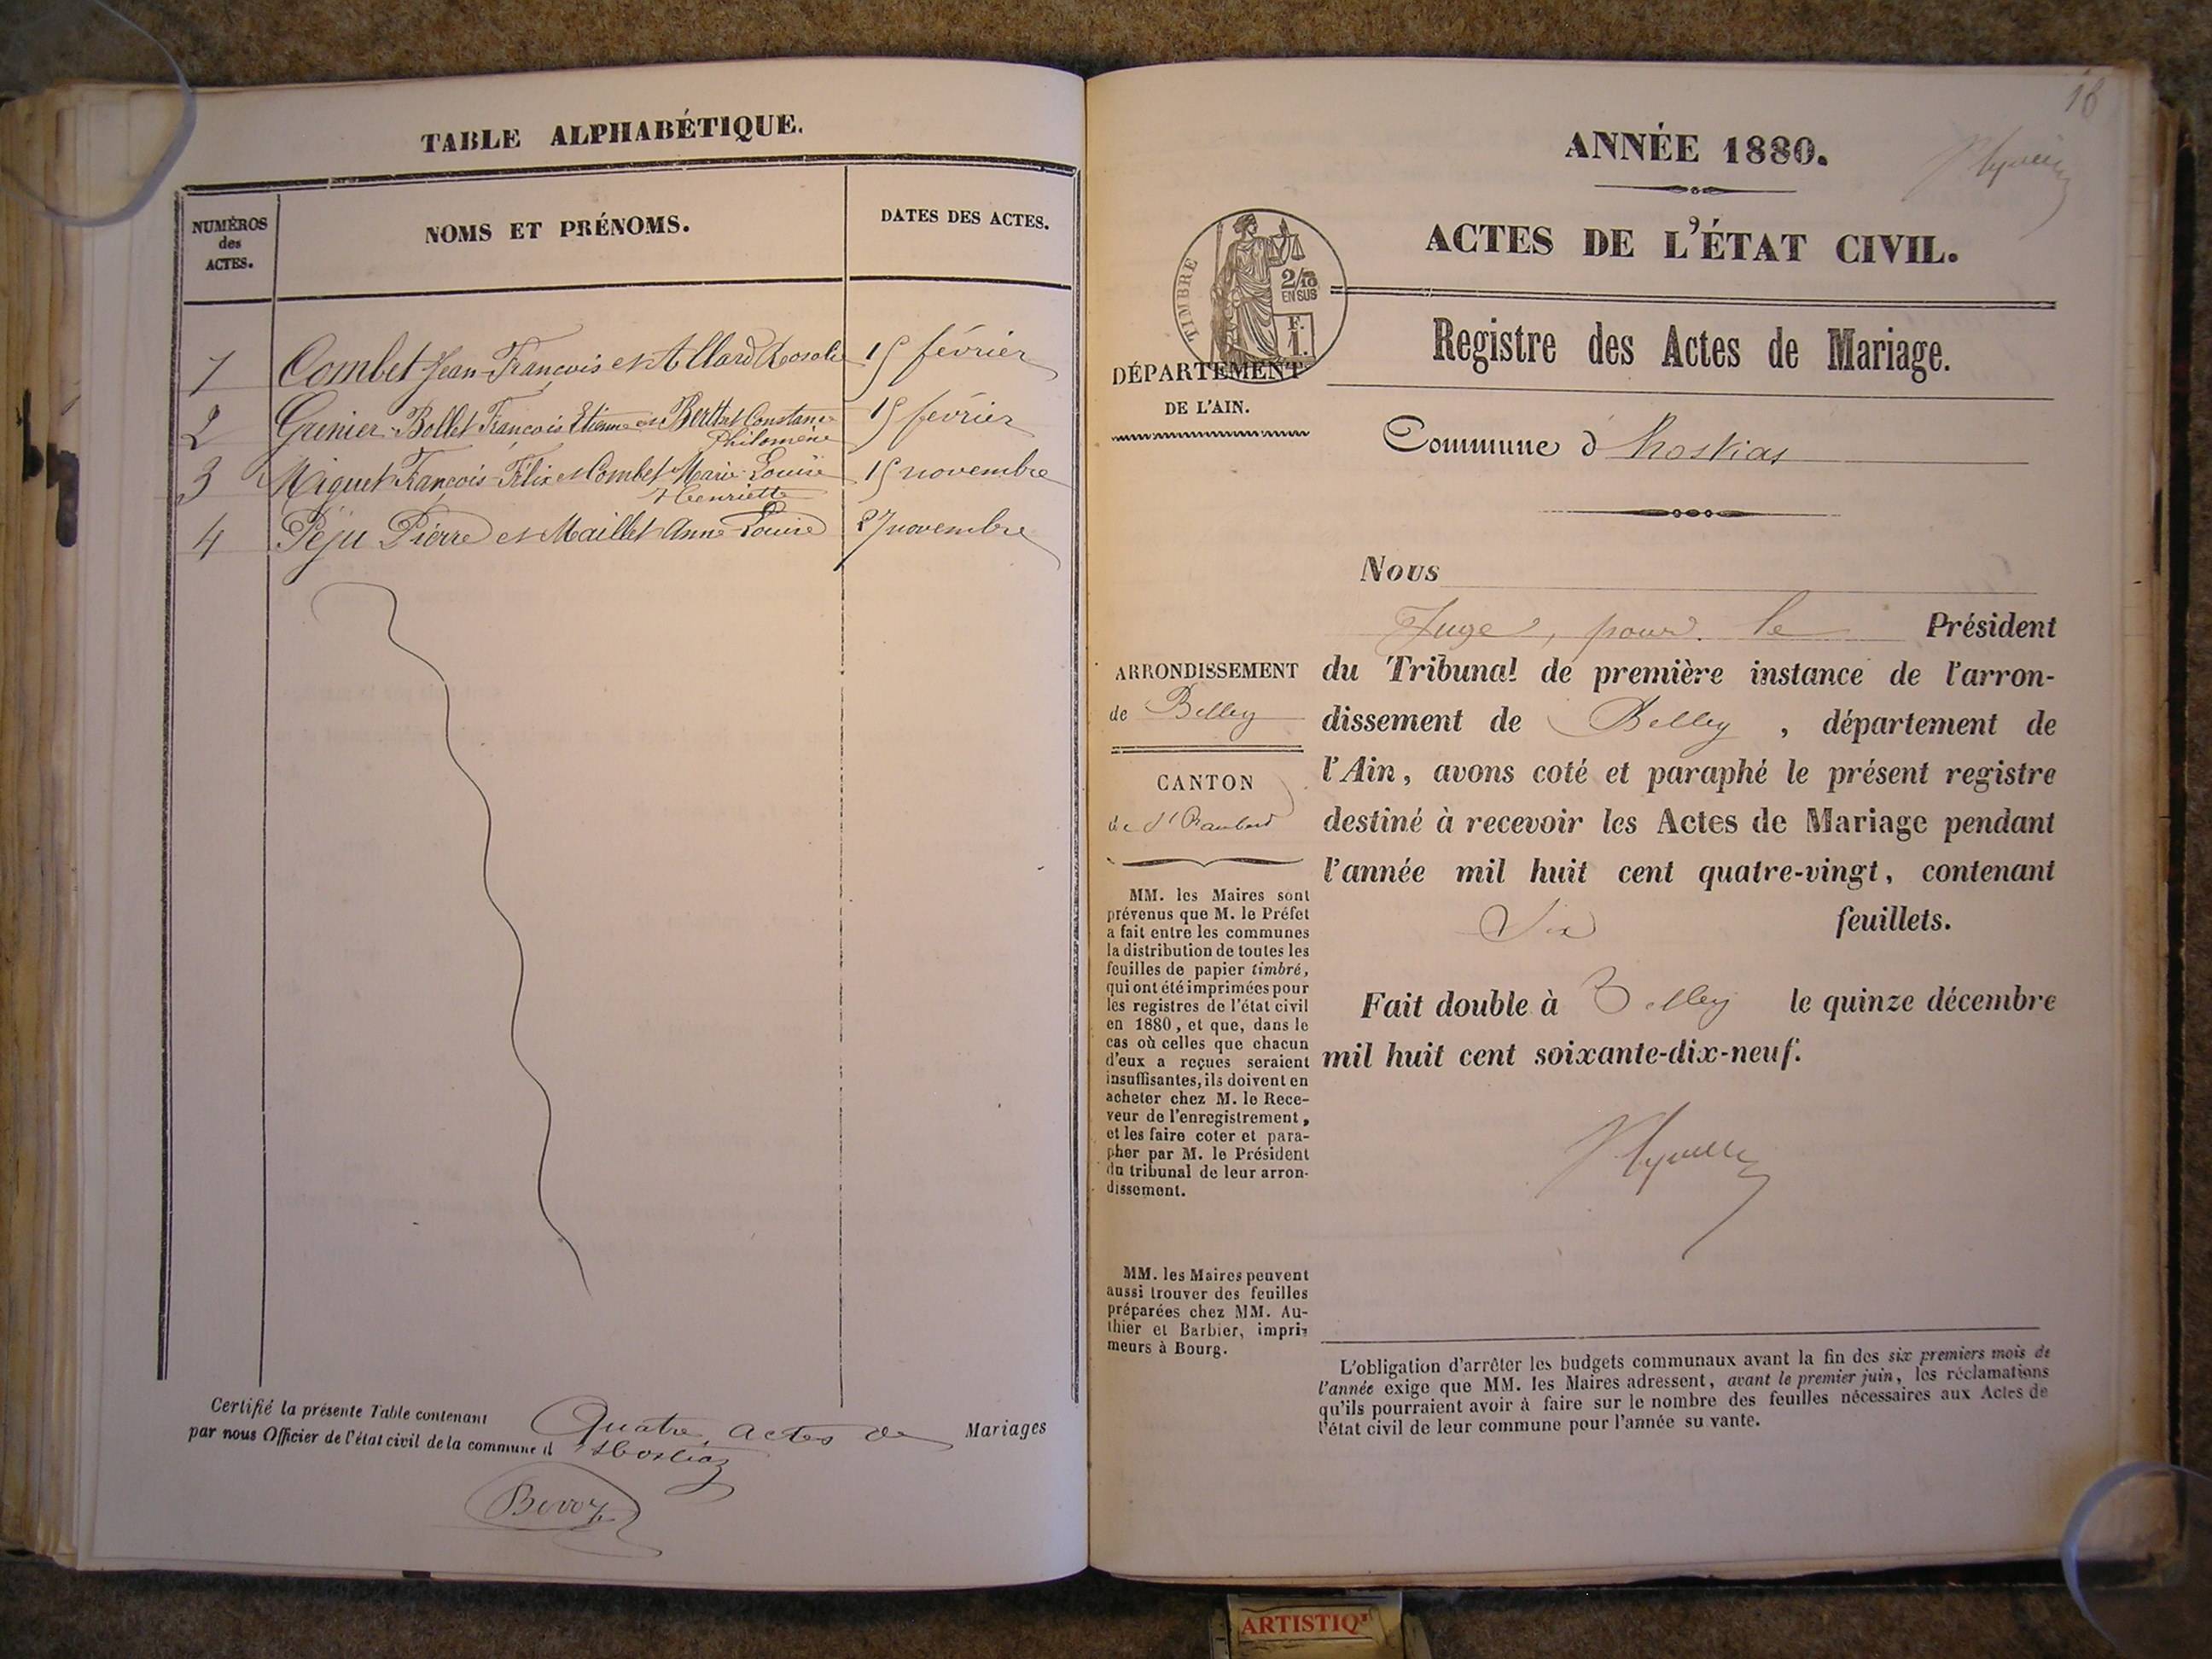 TABLE ALPHABÉTIQUE.
NUMÉROS
des
ACTES.
NOMS ET PRÉNOMS.
DATES DES ACTES.
1 Combet Jean-François et Allard Rosalie 15 février
2 Grinier-Bollet François Etienne et Berthet Constance 15 février
Philomène
3 Miguet François-Félix et Combet Marie Louise 15 novembre
Henriette
4 Péju Pierre et Maillet Anne Louise 27 novembre
Certifié la présente Table contenant Quatre actes de Mariages
par nous Officier de l'état civil de la commune d'Hostiaz
18
ANNÉE 1880.
ACTES DE L'ÉTAT CIVIL.
TIMBRE
2/10
EN SUS
F.
1.
Registre des Actes de Mariage.
DÉPARTEMENT
DE L'AIN.
Commune d'hostias
Nous
Juge, pour le Président
du Tribunal de première instance de l'arron-
dissement de Belley, département de
l'Ain, avons coté et paraphé le présent registre
destiné à recevoir les Actes de Mariage pendant
l'année mil huit cent quatre-vingt, contenant
Six feuillets.
Fait double à Belley le quinze décembre
mil huit cent soixante-dix-neuf.
ARRONDISSEMENT
de Belley
CANTON
de St Rambert
MM. les Maires sont
prévenus que M. le Préfet
a fait entre les communes
la distribution de toutes les
feuilles de papier timbré,
qui ont été imprimées pour
les registres de l'état civil
en 1880, et que, dans le
cas où celles que chacun
d'eux a reçues seraient
insuffisantes, ils doivent en
acheter chez M. le Rece-
veur de l'enregistrement,
et les faire coter et para-
pher par M. le Président
du tribunal de leur arron-
dissement.
MM. les Maires peuvent
aussi trouver des feuilles
préparées chez MM. Au-
thier et Barbier, impri-
meurs à Bourg.
L'obligation d'arrêter les budgets communaux avant la fin des six premiers mois de
l'année exige que MM. les Maires adressent, avant le premier juin, les réclamations
qu'ils pourraient avoir à faire sur le nombre des feuilles nécessaires aux Actes de
l'état civil de leur commune pour l'année su vante.
ARTISTIQ